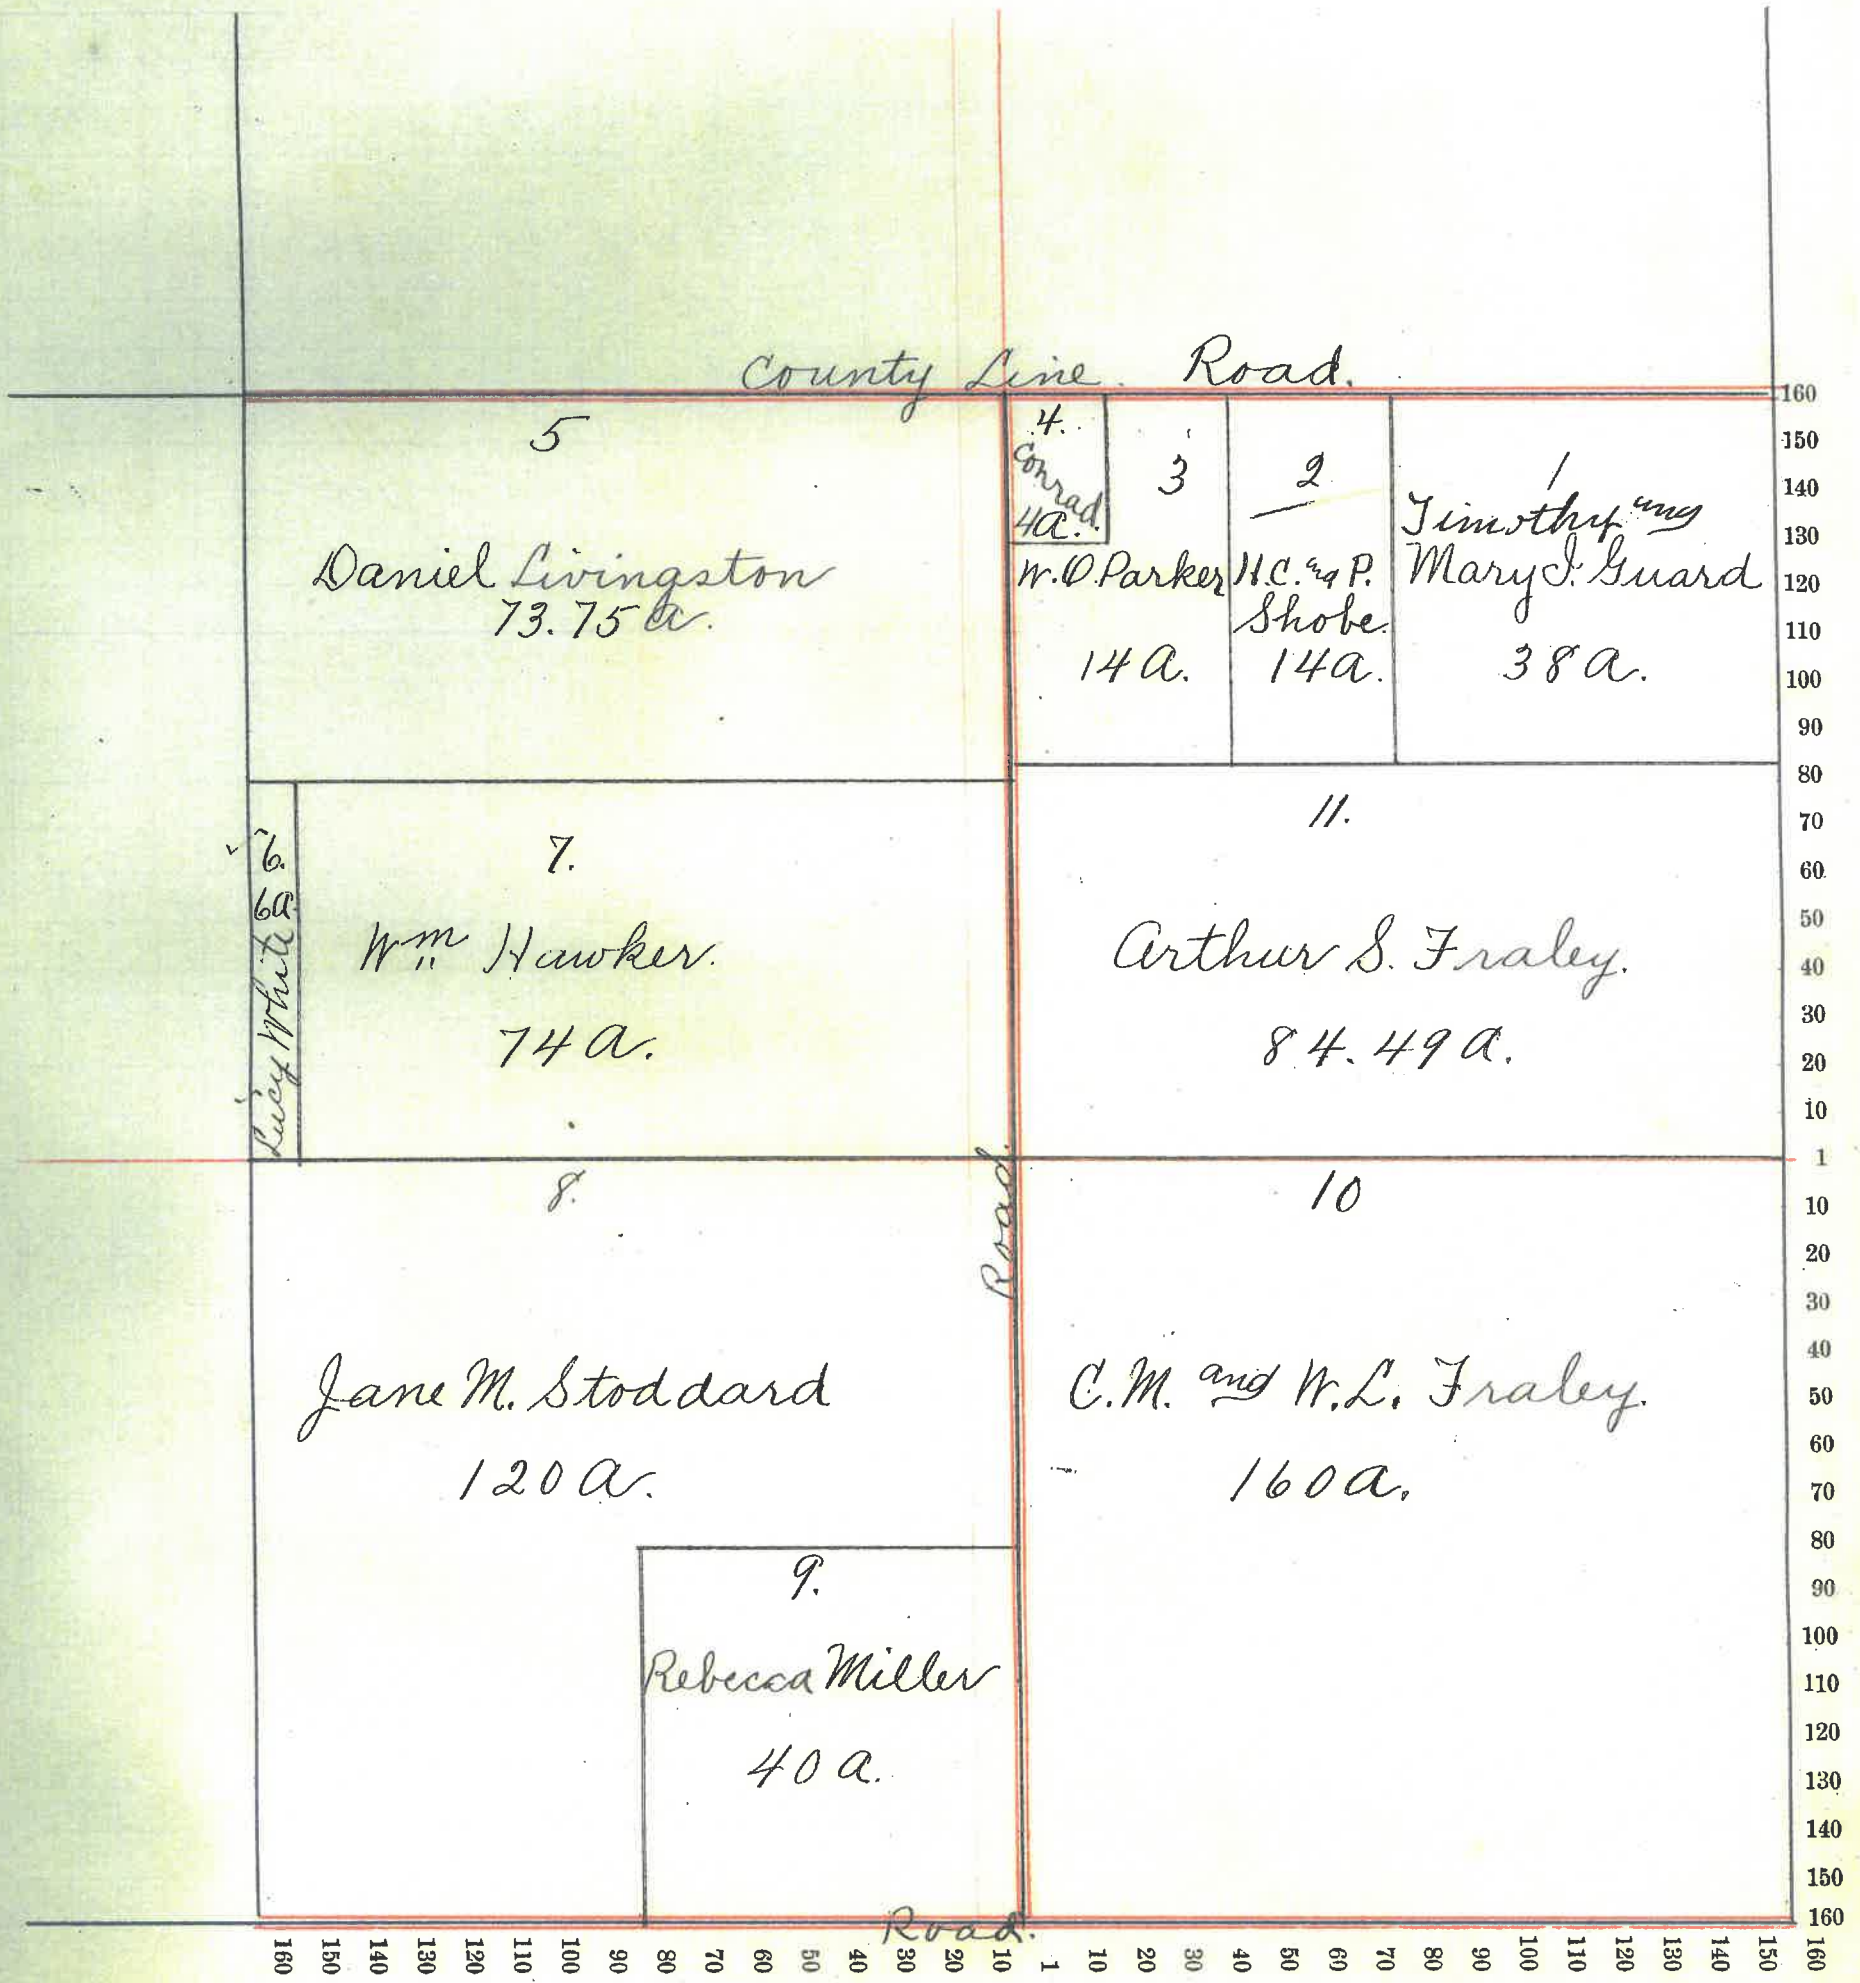 County Line. Road.
5
Daniel Livingston
73.75 a.
4.
Conrad.
4a.
3
W. O. Parker
14 a.
2
H. C. and P.
Shobe.
14 a.
1
Timothy and
Mary I. Guard
38 a.
6.
6a.
Lucy White
7.
Wm Hawker.
74 a.
11.
Arthur S. Fraley.
84.49 a.
Road.
8.
Jane M. Stoddard
120 a.
10
C. M. and W. L. Fraley.
160 a.
9.
Rebecca Miller
40 a.
Road.
160
150
140
130
120
110
100
90
80
70
60
50
40
30
20
10
1
10
20
30
40
50
60
70
80
90
100
110
120
130
140
150
160
160 150 140 130 120 110 100 90 80 70 60 50 40 30 20 10 1 10 20 30 40 50 60 70 80 90 100 110 120 130 140 150 160